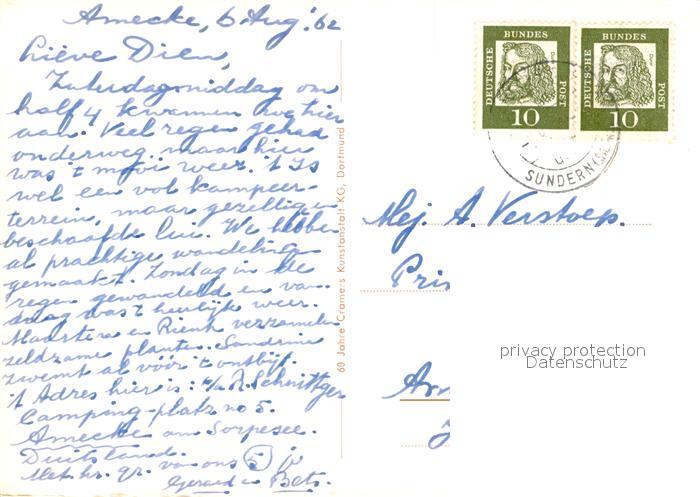 Amecke, 6 Aug. '62
Lieve Dien,
Zaterdagmiddag om
half 4 kwamen we hier
aan. Veel regen gehad
onderweg, maar hier
was 't mooi weer. 't Is
wel een vol kampeer-
terrein, maar gezellige
beschaafde lui. We hebben
al prachtige wandelingen
gemaakt. Zondag in de
regen gewandeld en van-
daag was 't heerlijk weer.
en Rienk verzamelen
zeldzame planten. Sandrine
zwemt al vóór 't ontbijt.
't Adres hier is: p/a A. Schnittger
Camping-platz no 5.
Amecke am Sorpesee.
Duitsland.
Met hr. gr. van ons 5
Gerard en Bets.
60 Jahre Cramers Kunstanstalt KG, Dortmund
DEUTSCHE BUNDES POST
10
DEUTSCHE BUNDES POST
10
SUNDERN
Mej. A. Verstoep.
Prin
privacy protection
Datenschutz